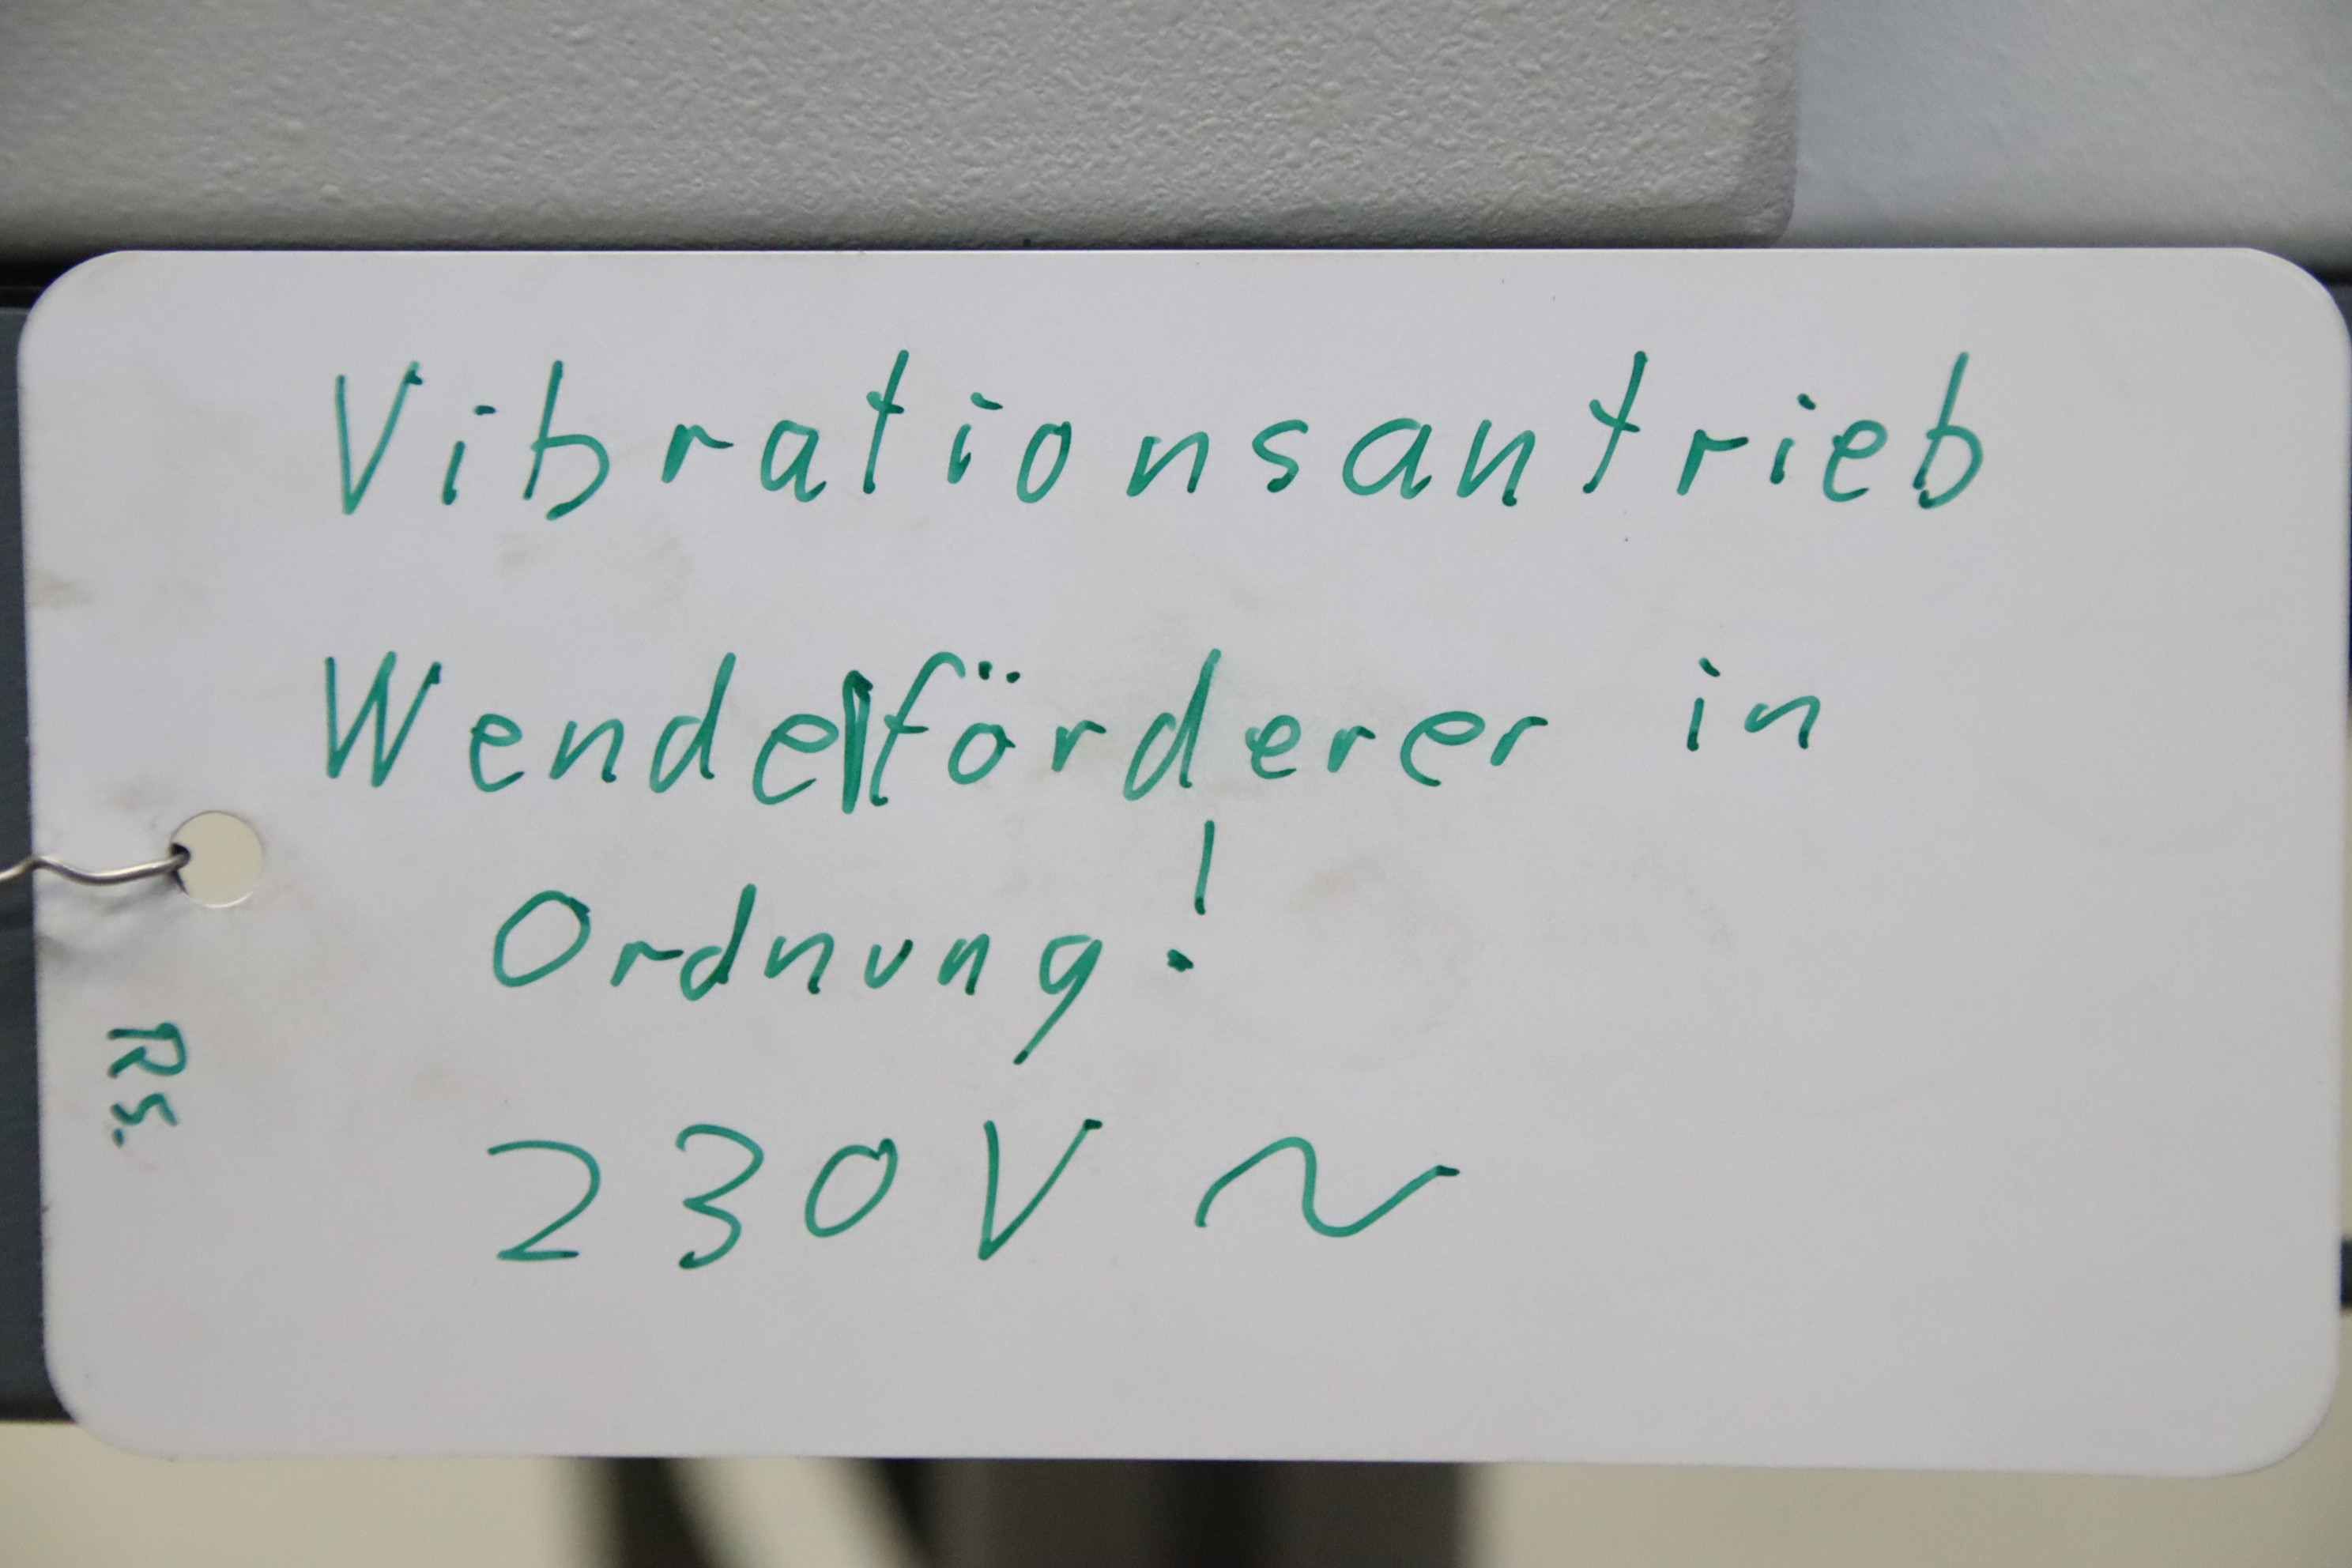 Vibrationsantrieb
Wendelförderer in
Ordnung!
230V ~
RS.